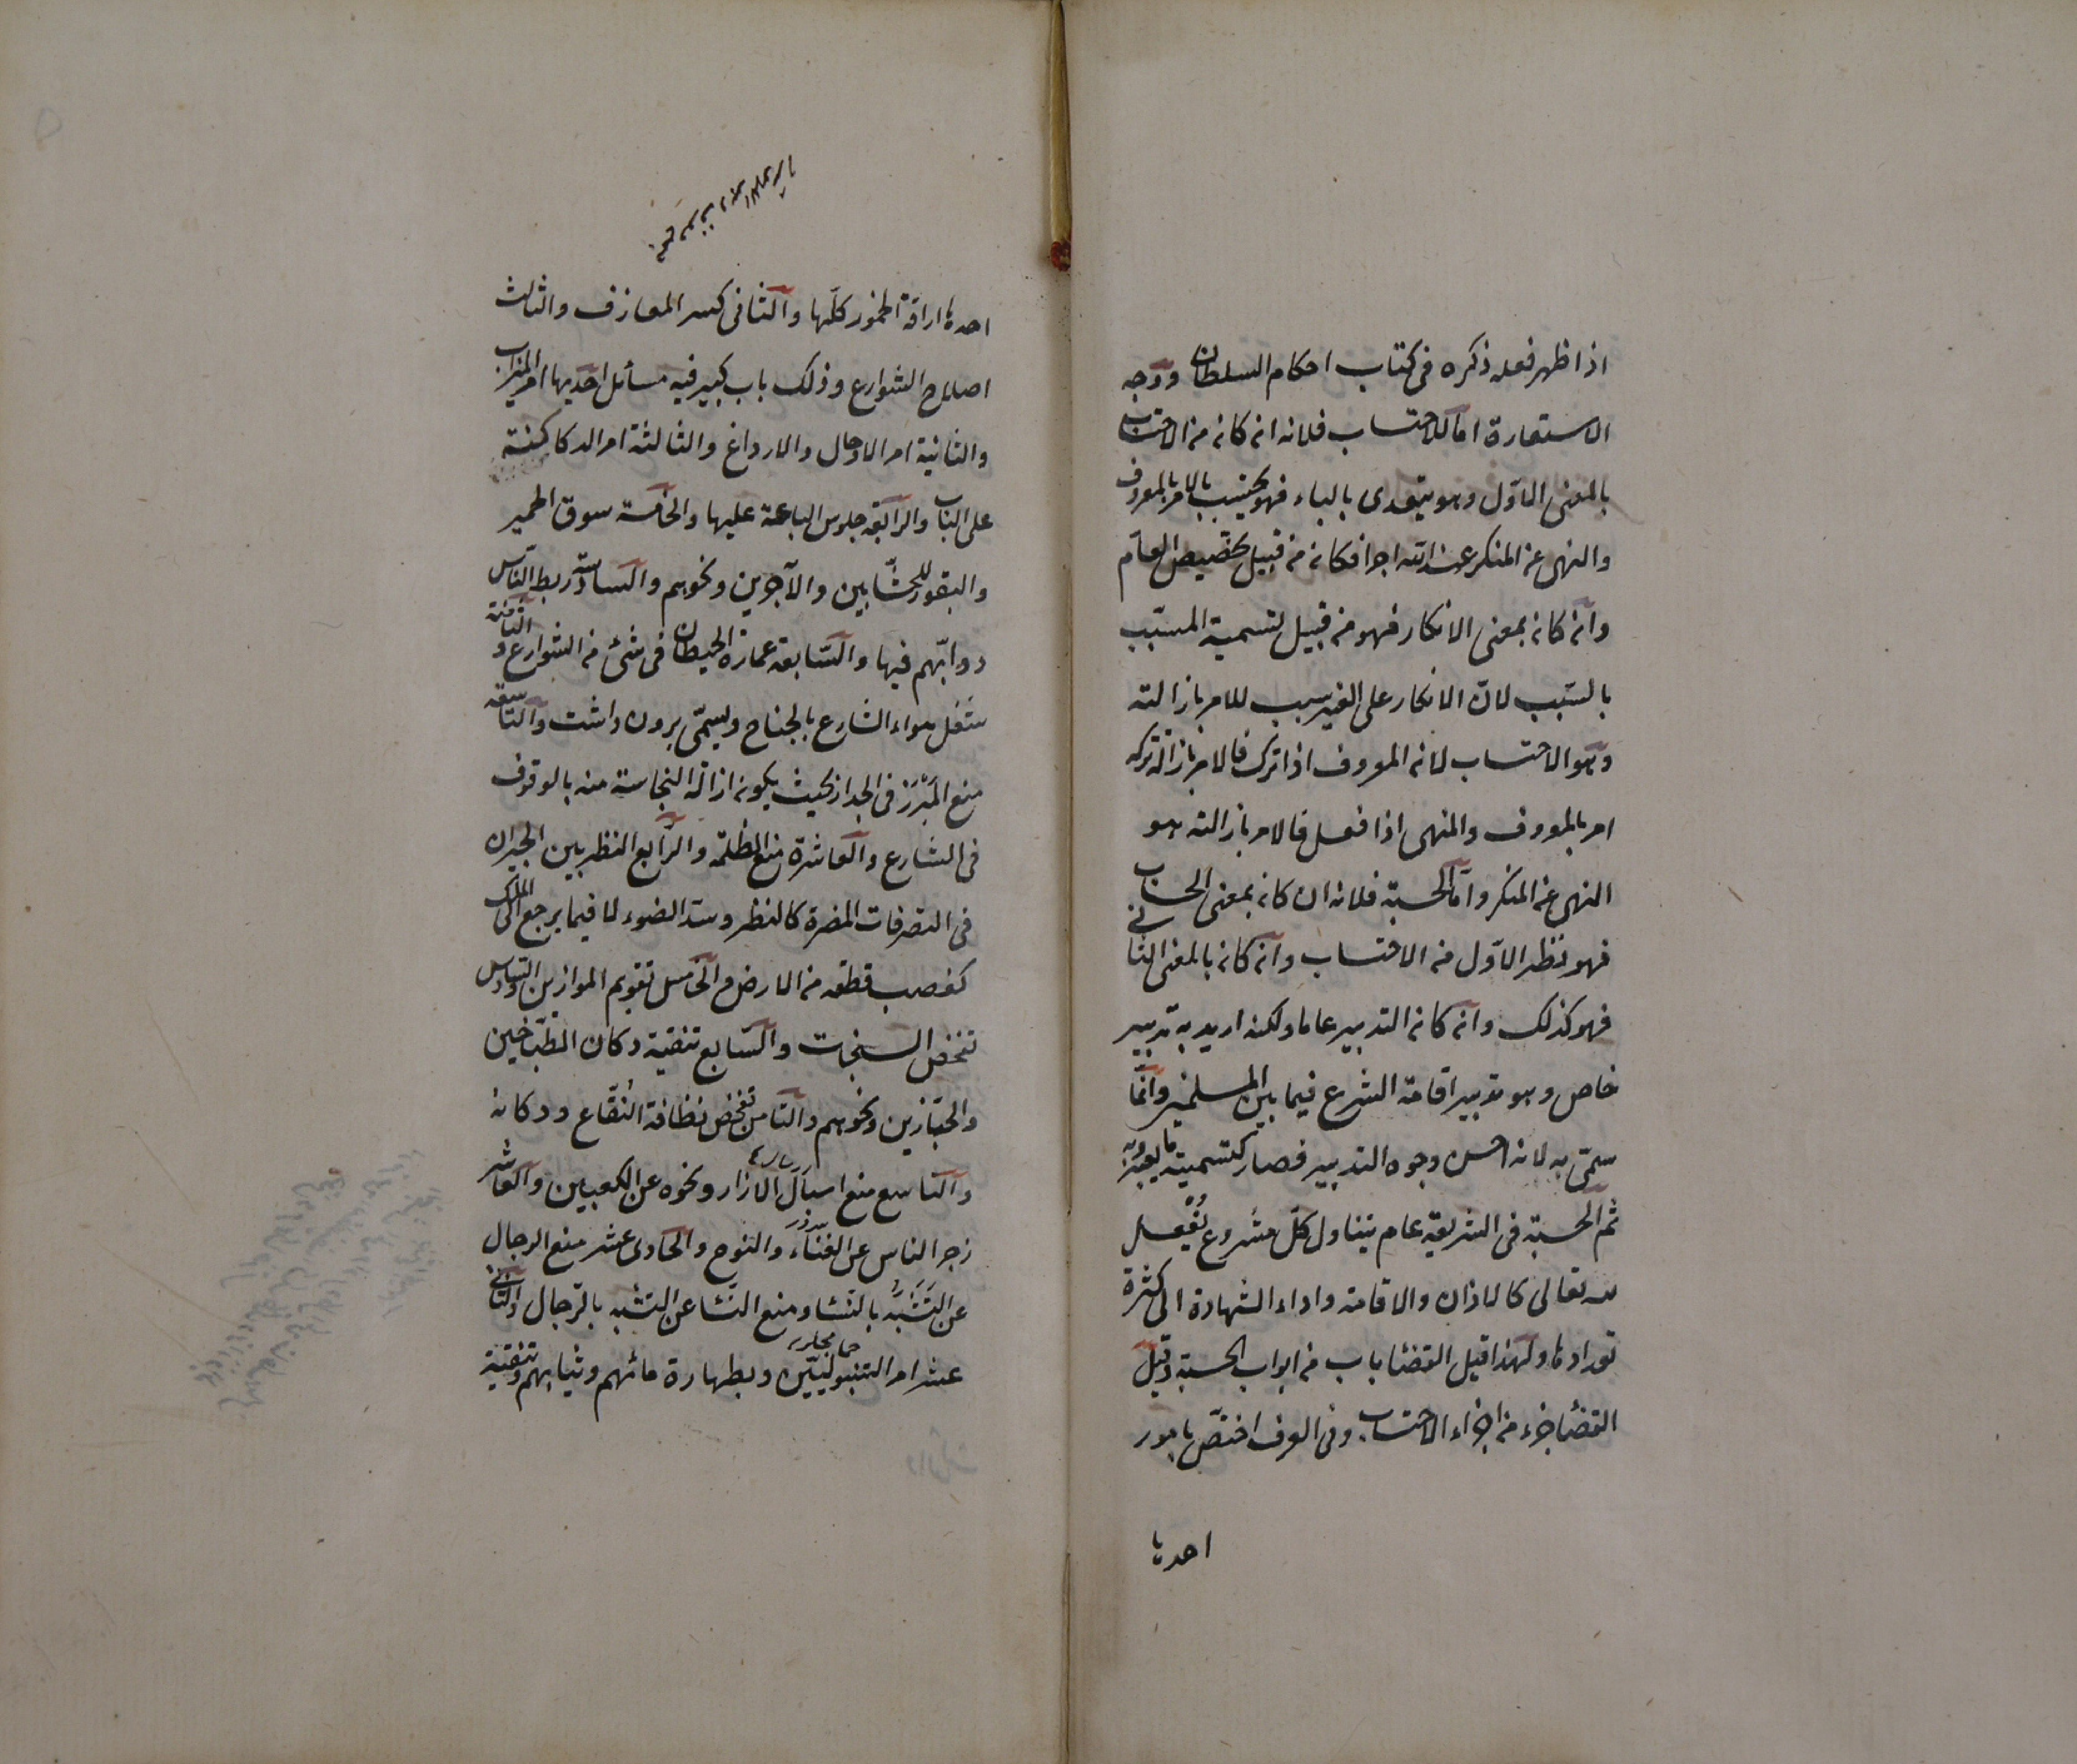 اذا ظهر فعله ذكره فى كتاب احكام السلطان ووجه
الاستعارة اما للاحتساب فلانه ان كانه من الاحتساب
بالمعنى الاول وهو يتعدى بالباء فهو يحتسب بالامر بالمعروف
والنهى عن المنكر عند الله اجرا فكانه من قبيل تخصيص العام
وان كانه بمعنى الانكار فهو من قبيل تسمية المسبّب
بالسّبب لانّ الانكار على الغير سبب للامر بازالته
وهو الاحتساب لانه المعروف اذا ترك فالامر بازالة تركه
امر بالمعروف والمنهى اذا فعل فالامر بازالته هو
النهى عن المنكر واما الحسبة فلانه ان كانه بمعنى الحساب
فهو نظير الاوّل من الاحتساب وان كانه بالمعنى الثانى
فهو كذلك وانه كانه التدبير عاما ولكنه اريد به تدبير
خاص وهو تدبير اقامة الشرع فيما بين المسلمين وانّما
سمّى به لانه احسن وجوه التدبير فصار كتسمية
ثم الحسبة فى الشريعة عام يتناول كلّ مشروع يُفعل
لله تعالى كالاذان والاقامة واداء الشهادة الى كثرة
تعدادها ولهذا قيل القضا باب من ابواب الحسبة وقيل
القضا جزء من اجزاء الاحتساب وفى العرف اختصّ بامور
احديها
احدها اراقة الخمور كلّها والثانى كسر المعازف والثالث
اصلاح الشوارع وذلك باب كبير فيه مسائل احديها امر الميزاب
والثانية امر الاوحال والارداغ والثالثة امر الدكاكنة
على الباب والرابعة جلوس الباعة عليها والخامسة سوق الحمير
والبقور للخشّابين والآجرين ونحوهم والسادسة ربط النّاس
دوابّهم فيها والسّابعة عمارة الحيطان فى شئ من الشوارع والثامنة
شغل هواء الشارع بالجناح ويسمّى برون داشت والتاسعة
منع المَبْرَز فى الجدار بحيث يكونه ازالة النجاسة منه بالوقوف
فى الشارع والعاشرة منع الظلّة والرّابع النظر بين الجيران
فى التصرفات المضرة كالنظر وسدّ الضوء لا فيما يرجع الى الملك
كغصب قطعة من الارض والخامس تقويم الموازين والسّادس
تفحّص السنجات والسّابع تنقية دكان الطبّاخين
والخبّازين ونحوهم والثامن تفحّص نظافة الفقّاع ودكانه
والتاسع منع اسبال الازار ونحوه عن الكعبين والعاشر
زجر الناس عن الغنّاء والنوح والحادى عشر منع الرجال
عن التَشَبُّه بالنّسا ومنع النّسا عن التشبه بالرّجال والثانى
عشر امر التنبوليّين وبطهارة مائهم وثيابهم وتنقية